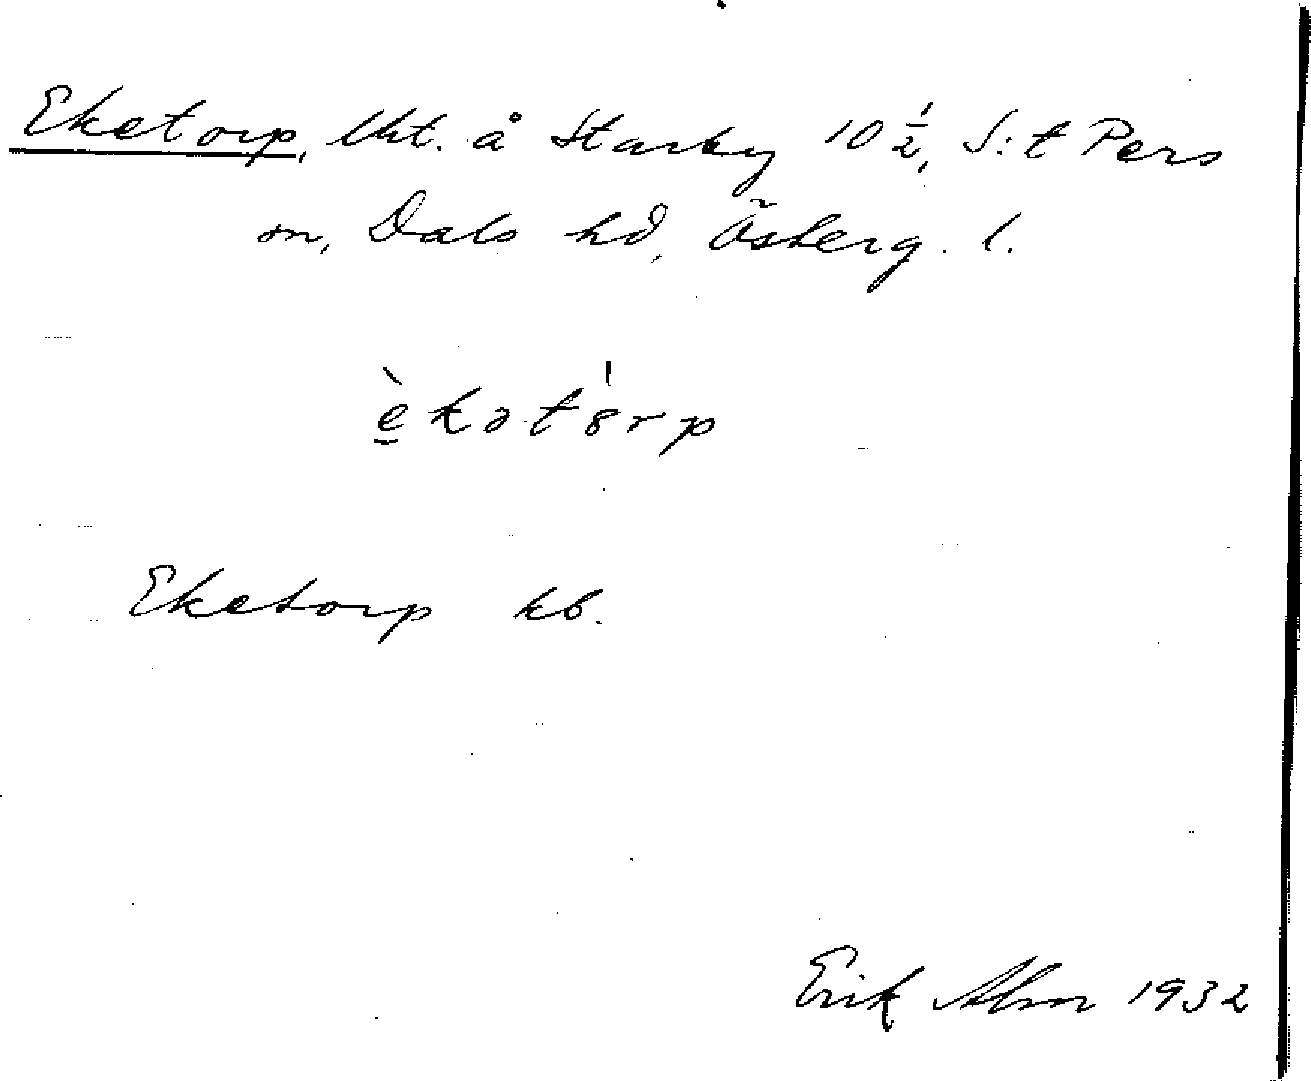 Eketorp, lht. å Starby 10 ½, S:t Pers
sn, Dals hd, Österg. l.
è̱kətȯrp
Eketorp kb.
Erik Alm 1932